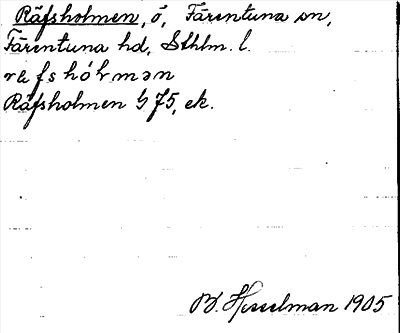 Räfsholmen, ö, Färentuna sn,
Färentuna hd, Sthlm. l.
Räfsholmen G 75, ek.
B. Hesselman 1905